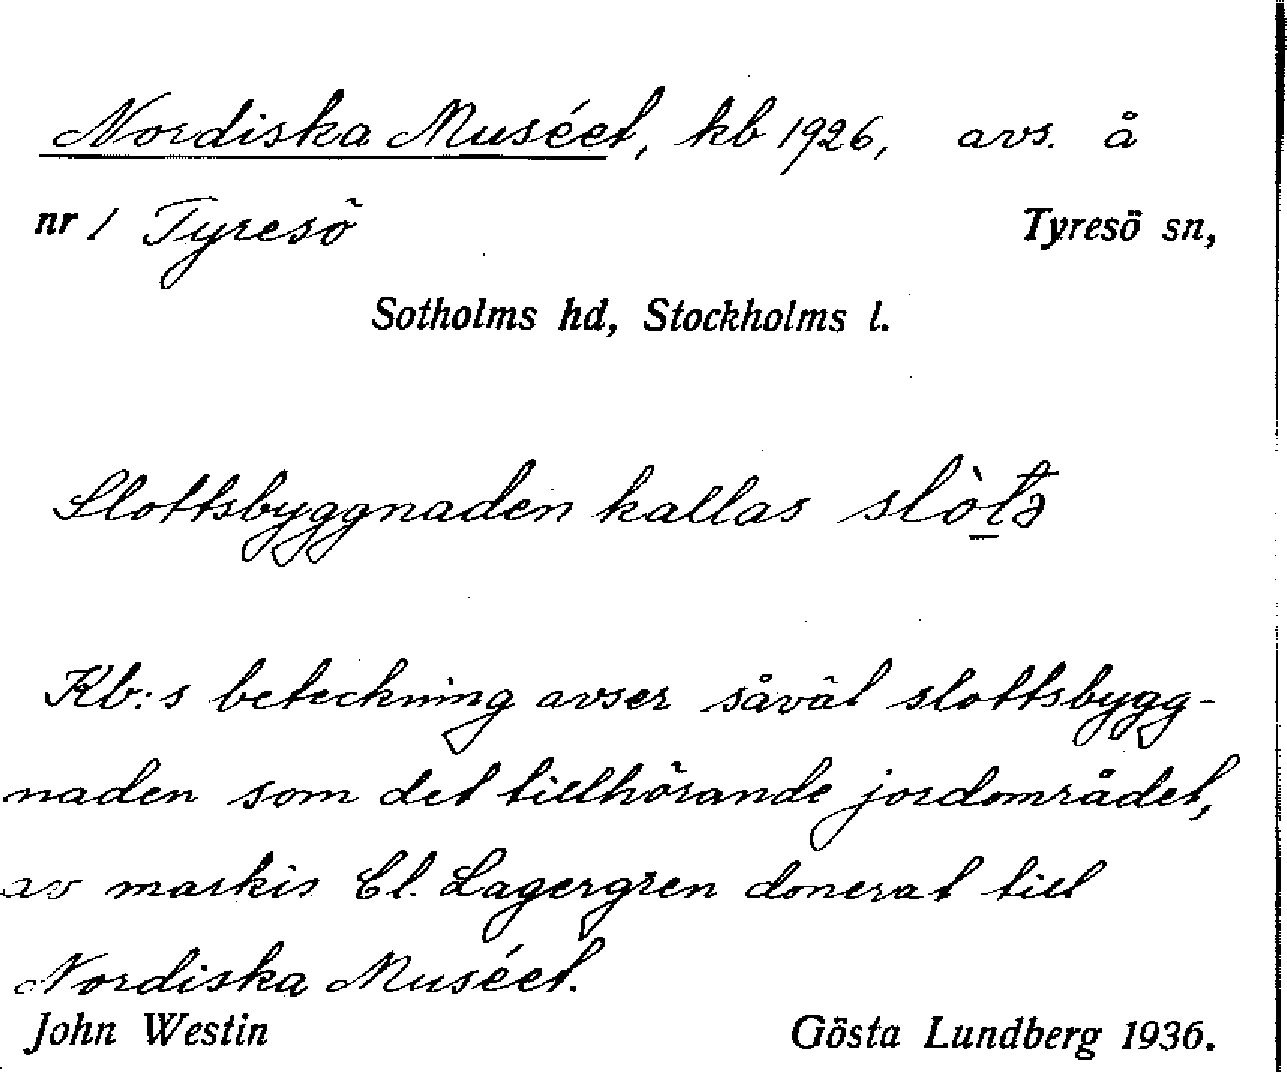 Nordiska Muséet, kb 1926, avs. å
nr 1 Tyresö Tyresö sn,
Sotholms hd, Stockholms l.
Slottsbyggnaden kallas
Kb:s beteckning avser såväl slottsbygg-
naden som det tillhörande jordområdet,
av markis Cl. Lagergren donerat till
Nordiska Muséet.
John Westin Gösta Lundberg 1936.